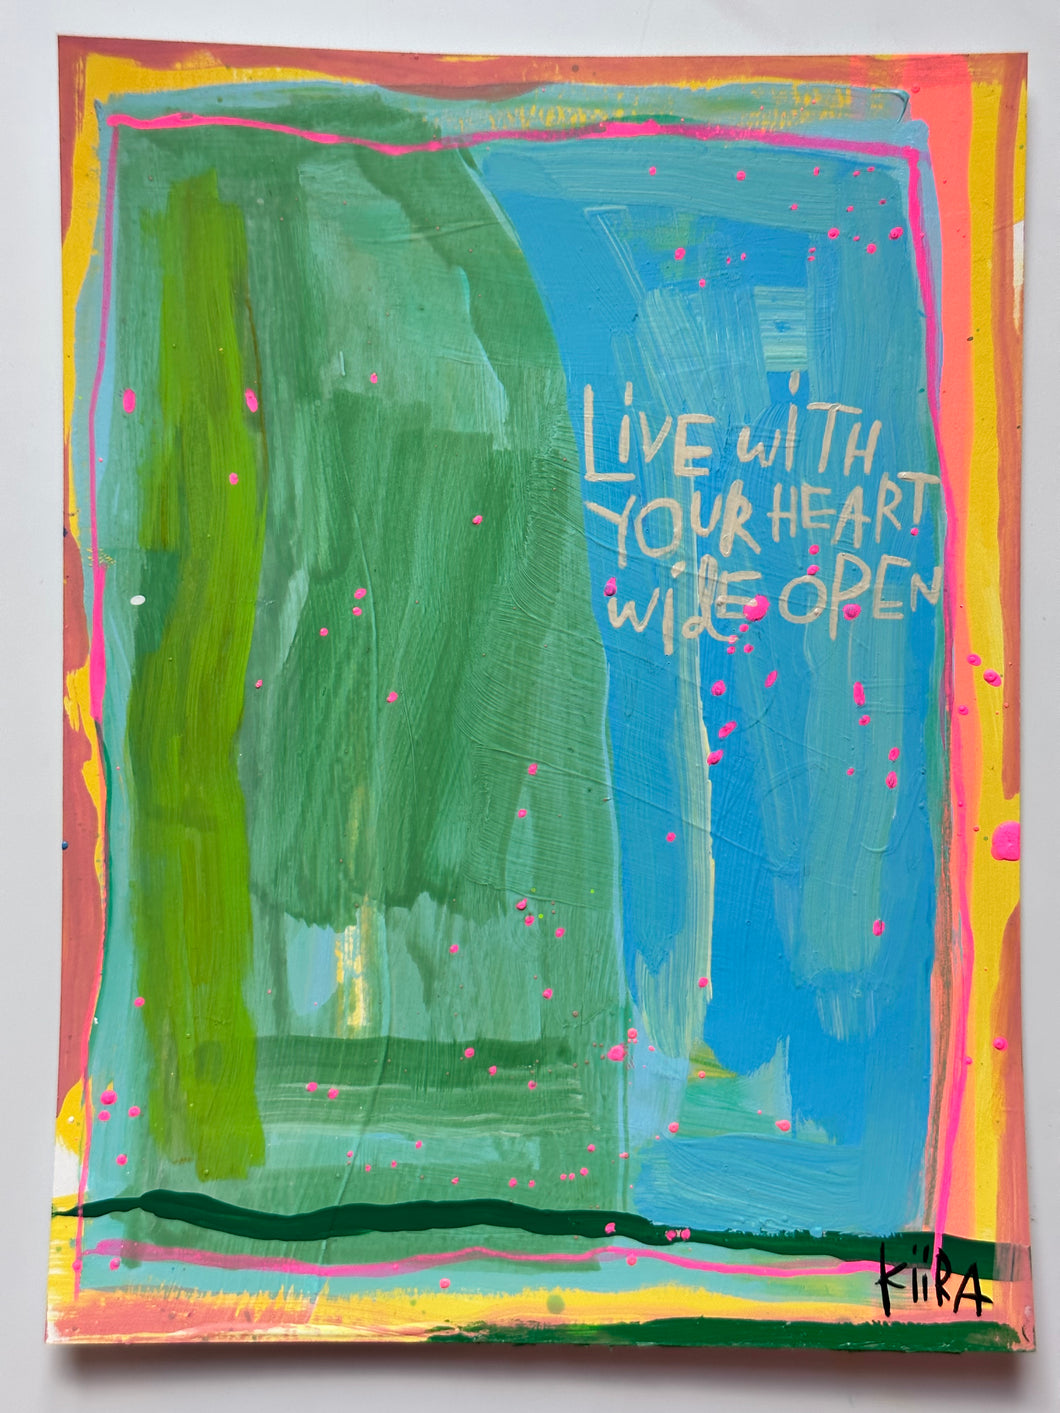 LiVE WiTH
YOUR HEART
WidE OPEN
KiiRA